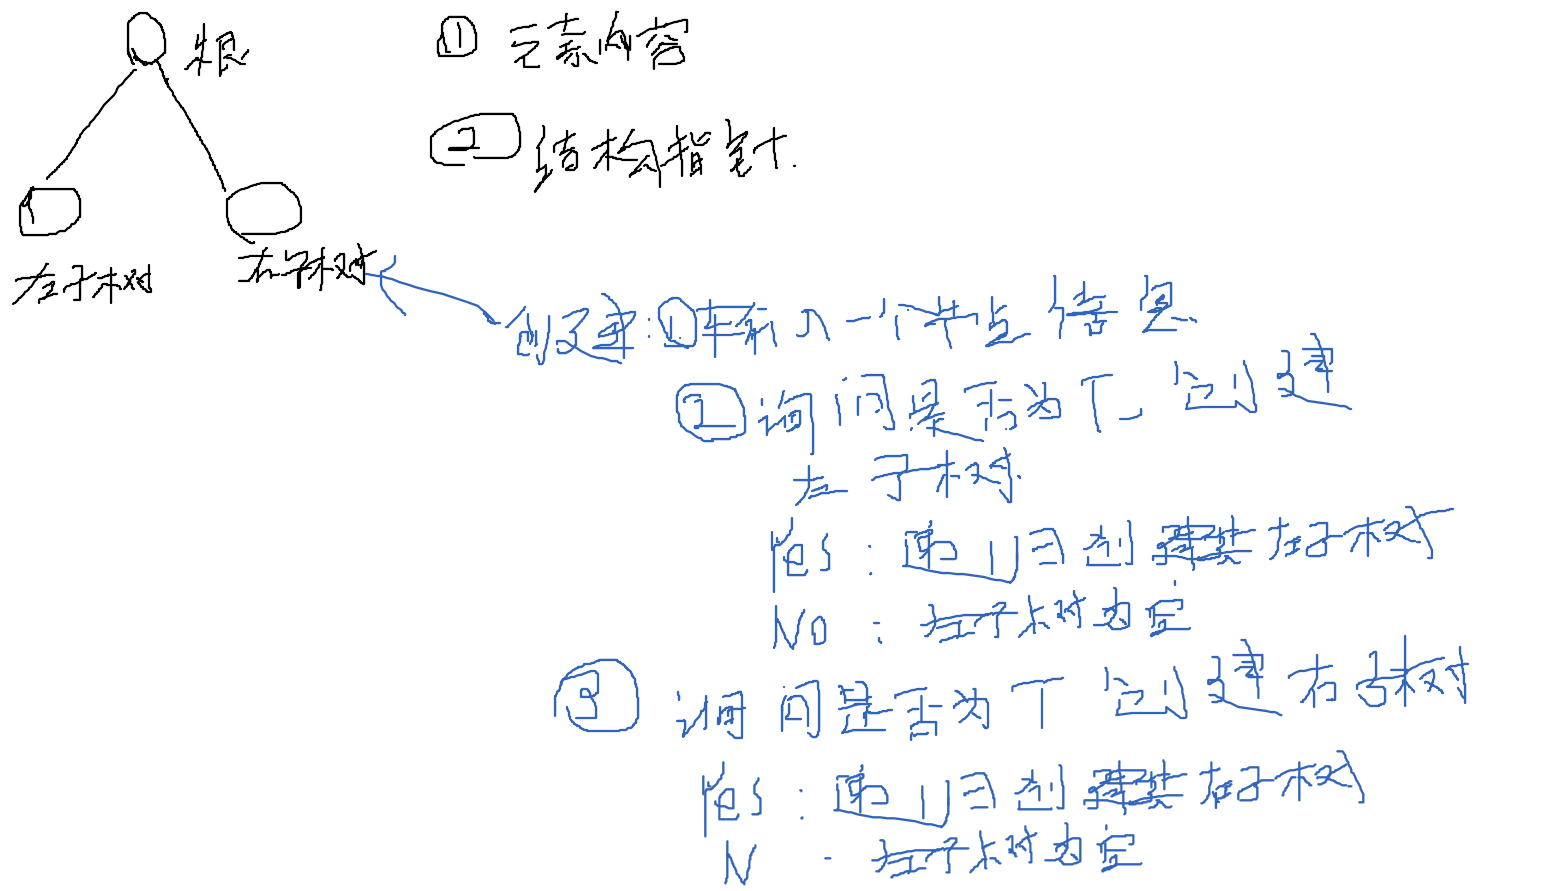 根
① 元素内容
② 结构指针.
左子树
右子树
创建:①输入一个节点信息
②询问是否为T创建
左子树
Yes:递归创建其左子树
NO:左子树为空
③询问是否为T创建右子树
Yes:递归创建其右子树
N:左子树为空